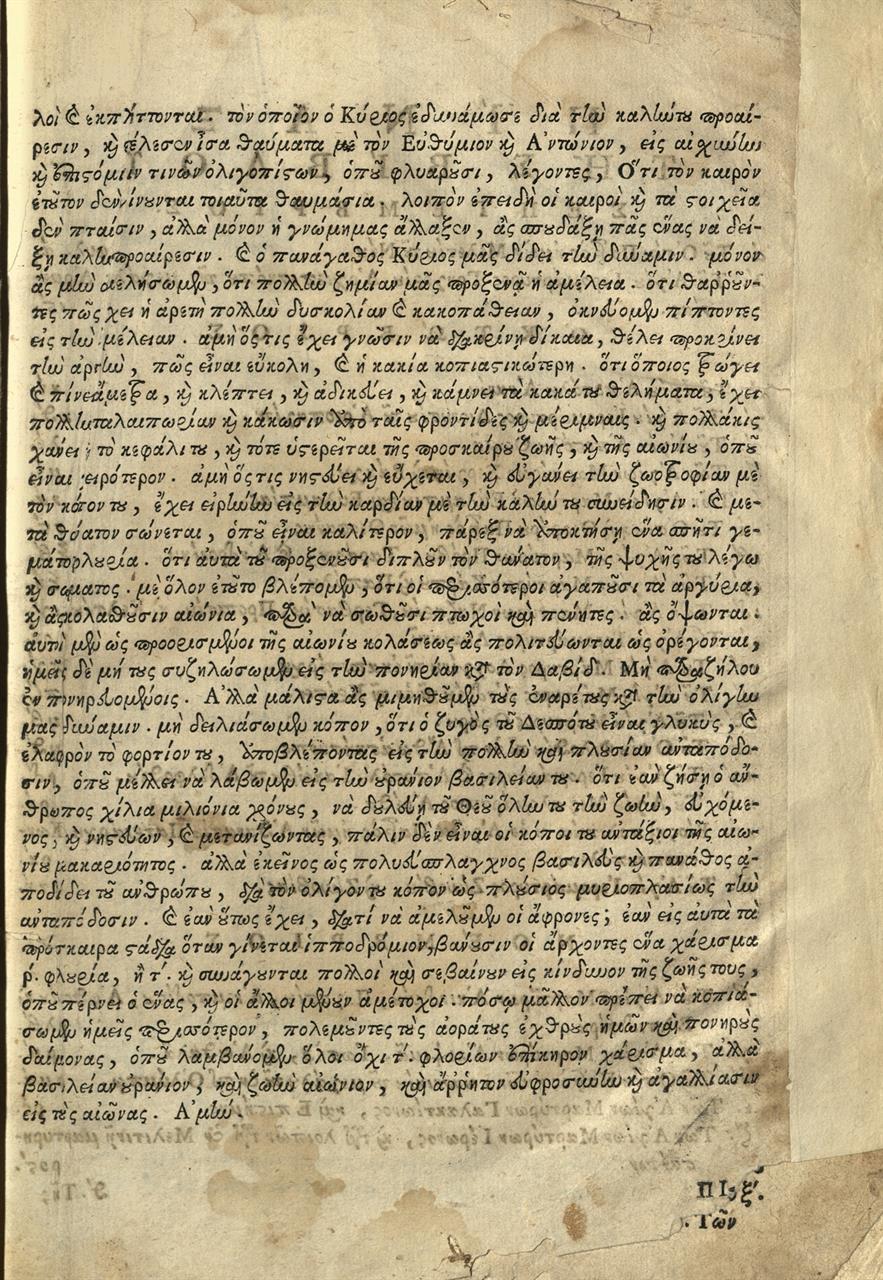 λοὶ ϗ ἐκπλήττονται. τὸν ὁποῖον ὁ Κύριος ἐδυνάμωσε διὰ τὴν καλήντου προαί-
ρεσιν, ϗ ἐτέλεσεν ἴσα θαύματα μὲ τὸν Εὐθύμιον ϗ Ἀντώνιον, εἰς αἰχύνην
ϗ ἐπιστόμιϊν τινῶν ὀλιγοπίστων, ὁποῦ φλυαροῦσι, λέγοντες, Ὅτι τὸν καιρὸν
ἐτοῦτον δὲν γίνουνται τοιαῦτα θαυμάσια. λοιπὸν ἐπειδὴ οἱ καιροὶ ϗ τὰ στοιχεῖα
δὲν πταίσιν, ἀλλὰ μόνον ἡ γνώμημας ἄλλαξεν, ἂς σπουδάξῃ πᾶς ἕνας νὰ δεί-
ξῃ καλὴν προαίρεσιν. ϗ ὁ πανάγαθος Κύριος μᾶς δίδει τὴν δύναμιν. μόνον
ἂς μὴν ἀμελήσωμεν, ὅτι πολλὴν ζημίαν μᾶς προξενᾷ ἡ ἀμέλεια. ὅτι θαρροῦν-
τες πῶς ἔχει ἡ ἀρετὴ πολλὴν δυσκολίαν ϗ κακοπάθειαν, ὀκνεύομεν πίπτοντες
εἰς τὴν ἀμέλειαν. ἀμὴ ὅστις ἔχει γνῶσιν νὰ διακρίνῃ δίκαια, θέλει προκρίνει
τὴν ἀρετὴν, πῶς εἶναι εὔκολη, ϗ ἡ κακία κοπιαστικώτερη. ὅτι ὁποῖος τρώγει
ϗ πίνει ἄμετρα, ϗ κλέπτει, ϗ ἀδικεύει, ϗ κάμνει τὰ κακά του θελήματα, ἔχει
πολλὴν ταλαιπωρίαν ϗ κάκωσιν ὑπὸ ταῖς φροντίδες ϗ μέριμναις. ϗ πολλάκις
χάνει τὸ κεφάλι του, ϗ τότε ὑστερεῖται τῆς προσκαίρου ζωῆς, ϗ τῆς αἰωνίου, ὁποῦ
εἶναι χειρότερον. ἀμὴ ὅστις νηστεύει ϗ εὔχεται, ϗ εὐγάνει τὴν ζωοτροφίαν μὲ
τὸν κόπον του, ἔχει εἰρήνην εἰς τὴν καρδίαν μὲ τὴν καλήν του συνείδησιν. ϗ με-
τὰ θάνατον σώνεται, ὁποῦ εἶναι καλίτερον, πάρεξ νὰ ὑποκτήσῃ ἕνα σπῆτι γε-
μάτο φλουρία. ὅτι αὐτὰ τοῦ προξενοῦσι διπλοῦν τὸν θάνατον, τῆς ψυχῆς του λέγω
ϗ σώματος. μὲ ὅλον ἐτοῦτο βλέπομεν, ὅτι οἱ περισσότεροι ἀγαποῦσι τὰ ἀργύρια,
ϗ ἂς κολασθοῦσιν αἰώνια, παρὰ νὰ σωθοῦσι πτωχοὶ καὶ πένητες. ἂς ὄψωνται.
αὐτοὶ μὲν ὡς προορισμένοι τῆς αἰωνίου κολάσεως ἂς πολιτεύωνται ὡς ὀρέγονται,
ἡμεῖς δὲ μή τους συζηλώσωμεν εἰς τὴν πονηρίαν κατὰ τὸν Δαβίδ. Μὴ παραζήλου
ἐν πονηρευομένοις. Ἀλλὰ μάλιστα ἂς μιμηθοῦμεν τοὺς ἐναρέτους κατὰ τὴν ὀλίγην
μας δύναμιν. μὴ δειλιάσωμεν κόπον, ὅτι ὁ ζυγὸς τοῦ Δεσπότου εἶναι γλυκὺς, ϗ
ἐλαφρὸν τὸ φορτίον του, ὑποβλέποντας εἰς τὴν πολλὴν καὶ πλουσίαν ἀνταπόδο-
σιν, ὁποῦ μέλλει νὰ λάβωμεν εἰς τὴν οὐράνιον βασιλείαν του. ὅτι ἐὰν ζήσῃ ὁ ἄν-
θρωπος χίλια μιλιόνια χρόνους, νὰ δουλεύῃ τοῦ Θεοῦ ὅλην του τὴν ζωὴν, εὐχόμε-
νος, ϗ νηστεύων, ϗ μετανίζωντας, πάλιν δὲν εἶναι οἱ κόποι του ἀντάξιοι τῆς αἰω-
νίου μακαριότητος. ἀλλὰ ἐκεῖνος ὡς πολυεύσπλαγχνος βασιλεὺς ϗ πανάθος ἀ-
ποδίδει τοῦ ἀνθρώπου, διὰ τὸν ὀλίγοντου κόπον ὡς πλούσιος μυριοπλασίως τὴν
ἀνταπόδοσιν. ϗ ἐὰν οὕτως ἔχει, διατί νὰ ἀμελοῦμεν οἱ ἄφρονες; ἐὰν εἰς αὐτὰ τὰ
πρόσκαιρα στάδια ὅταν γίνεται ἱπποδρόμιον, βάνουσιν οἱ ἄρχοντες ἕνα χάρισμα
ρ΄. φλουρία, ἢ τ΄. ϗ συνάγουνται πολλοὶ καὶ σεβαίνουν εἰς κίνδυνον τῆς ζωῆς τους,
ὁποῦ πέρνει ὁ ἕνας, ϗ οἱ ἄλλοι μένουν ἀμέτοχοι. πόσῳ μᾶλλον πρέπει νὰ κοπιά-
σωμεν ἡμεῖς περισσότερον, πολεμῶντες τοὺς ἀοράτους ἐχθροὺς ἡμῶν καὶ πονηροὺς
δαίμονας, ὁποῦ λαμβάνομεν ὅλοι ὄχι τ΄. φλορίων ἐπίκηρον χάρισμα, ἀλλὰ
βασιλείαν οὐράνιον, καὶ ζωὴν αἰώνιον, καὶ ἄρρητον εὐφροσύνην ϗ ἀγαλλίασιν
εἰς τοὺς αἰῶνας. Ἀμήν.
Τῶν